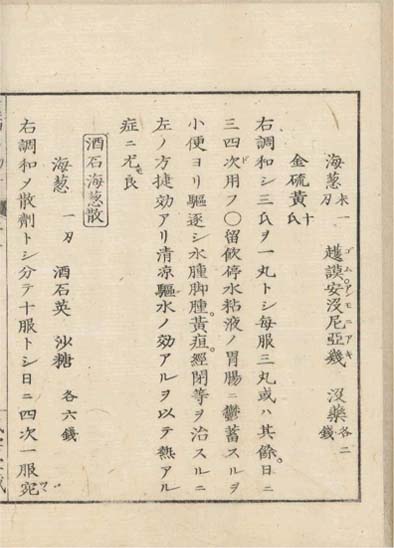 海葱 末一刄 越謨安没尼亜幾 ゴムアンモニアキ 没薬 各二銭
金硫黄 十氏
右調和シ三氏ヲ一丸トシ毎服三丸或ハ其餘日ニ
三四次用フ〇留飲停水粘液ノ胃腸ニ鬱蓄スルヲ
小便ヨリ驅逐シ水腫脚腫。黄疸。經閉等ヲ治スルニ
左ノ方捷効アリ清凉驅水ノ効アルヲ以テ熱アル
症ニ尤モ良
酒石海葱散
海葱 一刄 酒石英 沙糖 各六錢
右調和メ散劑トシ分テ十服トシ日ニ四次一服宛